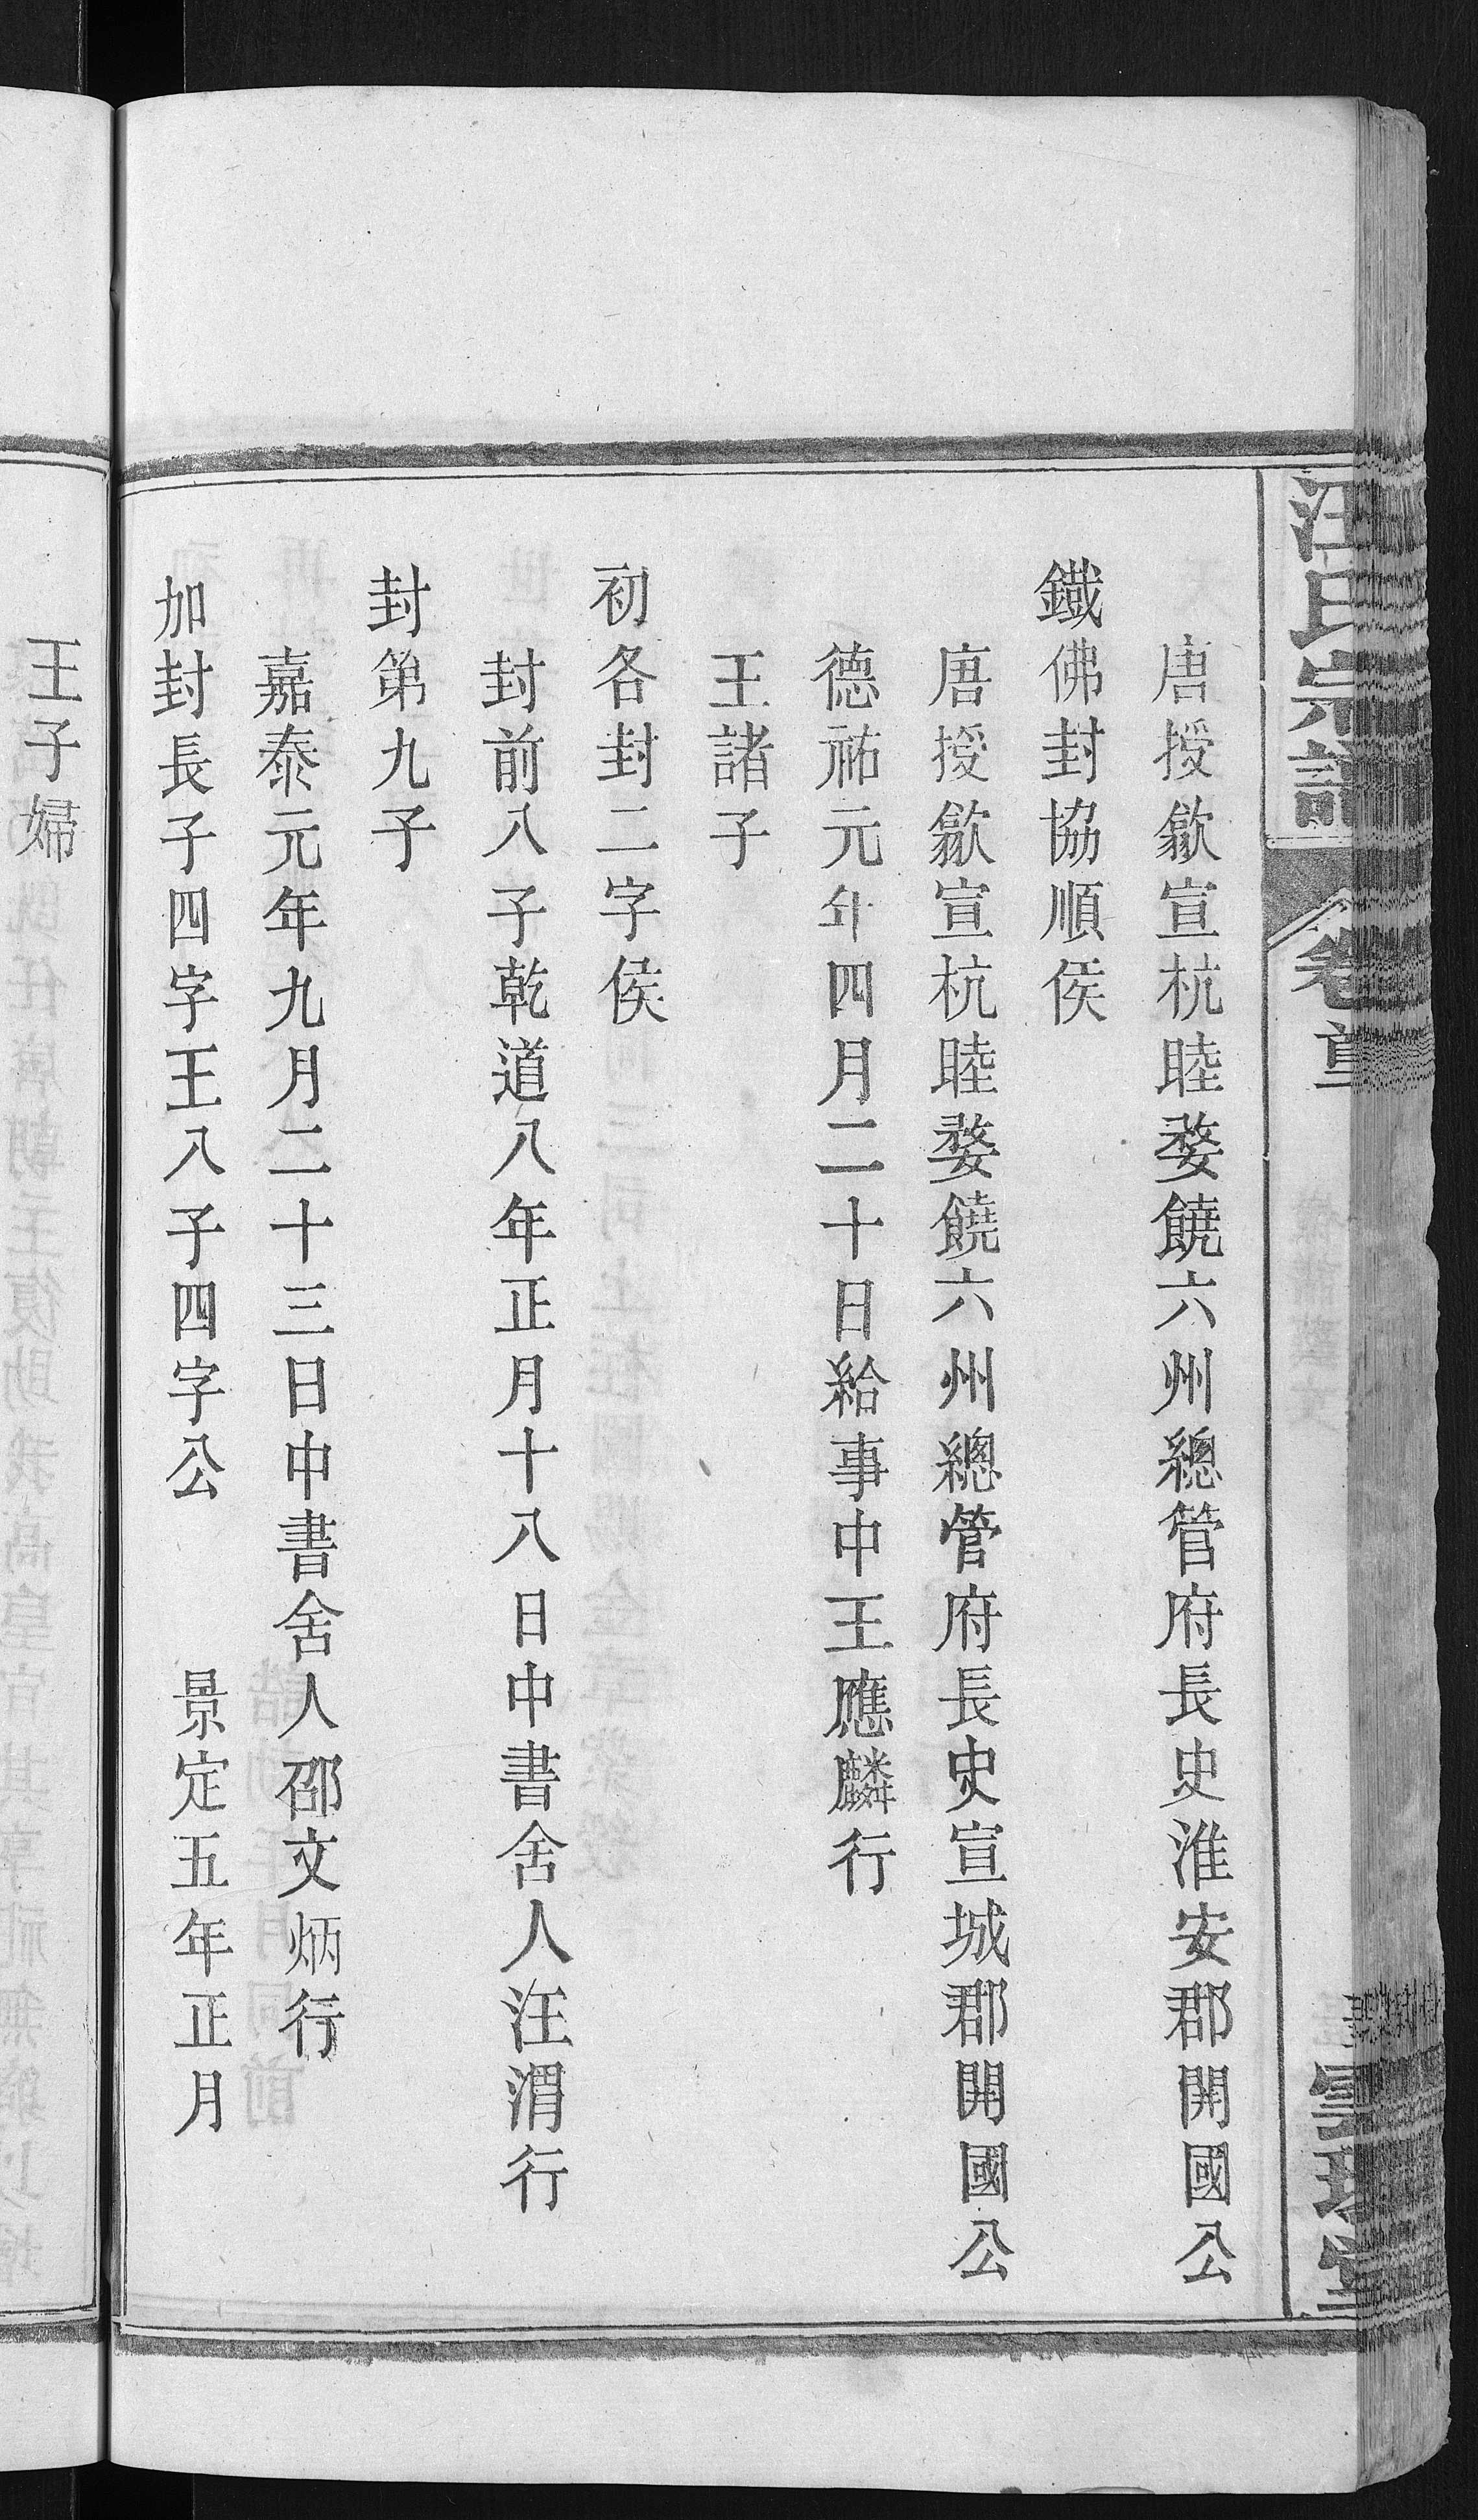 汪氏宗譜
卷首
唐授歙宣杭睦婺饒六州總管府長史淮安郡開國公
鐵佛封協順侯
唐授歙宣杭睦婺饒六州總管府長史宣城郡開國公
德祐元年四月二十日給事中王應麟行
王諸子
初各封二字侯
封前八子乾道八年正月十八日中書舍人汪渭行
封第九子
嘉泰元年九月二十三日中書舍人邵文炳行
加封長子四字王八子四字公 景定五年正月
王子婦